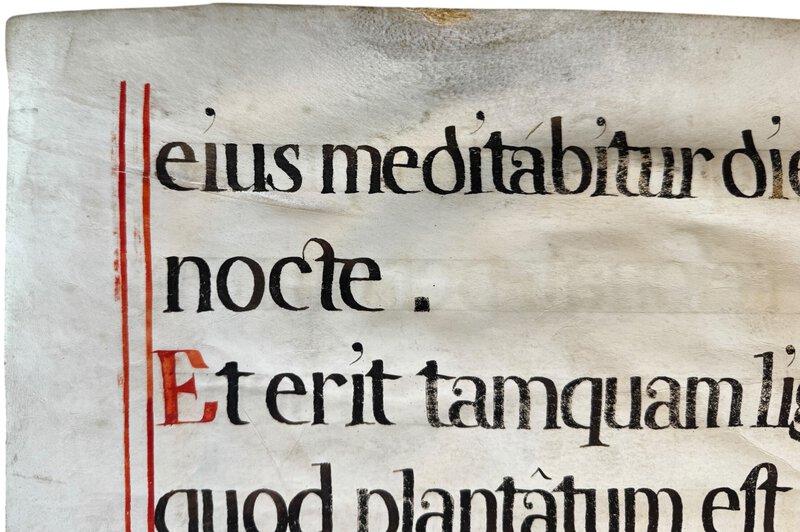 eius meditábitur die
nocte .
Et erit tamquam lig
quod plantâtum est